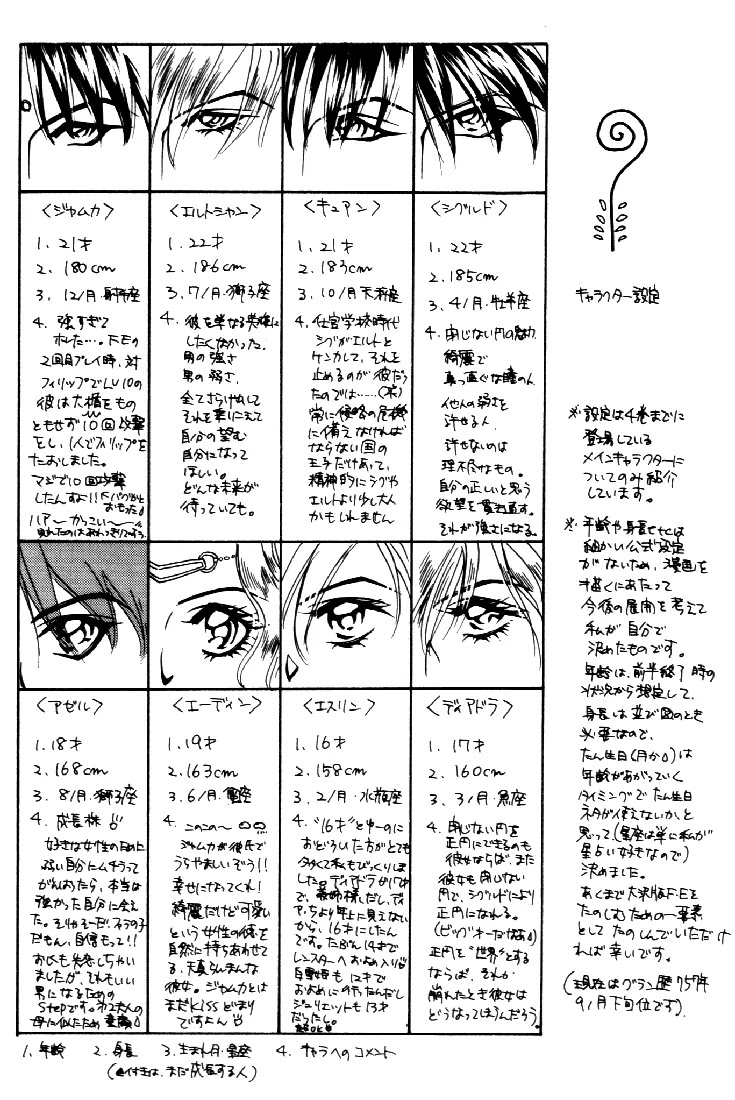 〈シグルド〉
1. 22才
2. 185cm
3. 4/月・牡羊座
4. 閉じない円の魅力
綺麗で
真っ直ぐな瞳の人
他人の弱さを
許せる人
許せないのは
理不尽なもの。
自分の正しいと思う
欲望を貫き通す。
それが強さになる。
〈キュアン〉
1. 21才
2. 183cm
3. 10/月 天秤座
4. 仕官学校時代
シグがエルトと
ケンカして、それを
止めるのが彼だっ
たのでは……(笑)
常に侵略の危機
に備えなければ
ならない国の
王子だけあって、
精神的にシグや
エルトより少し大人
かもしれません
〈エルトシャン〉
1. 22才
2. 186cm
3. 7/月・獅子座
4. 彼を単なる英雄に
したくなかった。
男の強さ
男の弱さ、
全てさらけ出して
それを乗りこえて
自分の望む
自分になって
ほしい。
どんな未来が
待っていても。
〈ジャムカ〉
1. 21才
2. 180cm
3. 12/月・射手座
4. 強すぎて
ホレた…。F.Eの
2回目プレイ時、対
フィリップでLV10の
彼は大楯をもの
ともせず10回攻撃
をし、1人でフィリップを
たおしました。
マジで10回攻撃
したんすよ!!
ハア〜かっこい〜
〈ディアドラ〉
1. 17才
2. 160cm
3. 3/月・魚座
4. 閉じない円を
正円にできるのも
彼女ならば、また
彼女も閉じない
円で、シグルドにより
正円になれる。
正円を"世界"とする
ならば、それが
崩れたとき彼女は
どうなってしまうんだろう。
〈エスリン〉
1. 16才
2. 158cm
3. 2/月・水瓶座
4. "16才"とゆーのに
おどろいた方がとても
多くて私もびっくりしま
した。ディアドラが17才
で、義姉様だし、ディ
ア.ちより年上に見えない
から、16才にしたん
です。たぶん14才で
レンスターへおよめ入り
も12才で
およめにいったんだし
ジュリエットも13才
だったし。
〈エーディン〉
1. 19才
2. 163cm
3. 6/月・双子座
4. このこの〜
ジャムカが彼氏で
うらやましいぞう!!
幸せになってくれ!
綺麗だけど可愛い
という女性の徳を
自然に持ちあわせて
る、天真らんまんな
彼女。ジャムカとは
まだKissどまり
ですよん
〈アゼル〉
1. 18才
2. 168cm
3. 8/月・獅子座
4. 成長株
好きな女性のために
弱い自分にムチうって
がんばったら、本当は
強かった自分に会え
た。
だもん、自信もって!!
おしくも失恋しちゃい
ましたが、それもいい
男になるための
Stepです。
母に似たため童顔
1. 年齢 2. 身長 3. 生まれ月・星座 4. キャラへのコメント
(●付きは、まだ成長する人)
キャラクター設定
※設定は4巻までに
登場している
メインキャラクターに
ついてのみ紹介
しています。
※年齢や身長etcは
細かい公式設定
がないため、漫画を
描くにあたって
今後の展開を考えて
私が自分で
決めたものです。
年齢は、前半終了時の
状況から想定して、
身長は並び図のとき
必要なので、
たん生日(月か)は
年齢があがっていく
タイミングでたん生日
ネタが使えないかと
思って、(星座は単に私が
星占い好きなので)
決めました。
あくまで大沢版F.Eを
たのしむための一要素
としてたのしんでいただけ
れば幸いです。
(現在はグラン歴757年
9/月下旬位です)